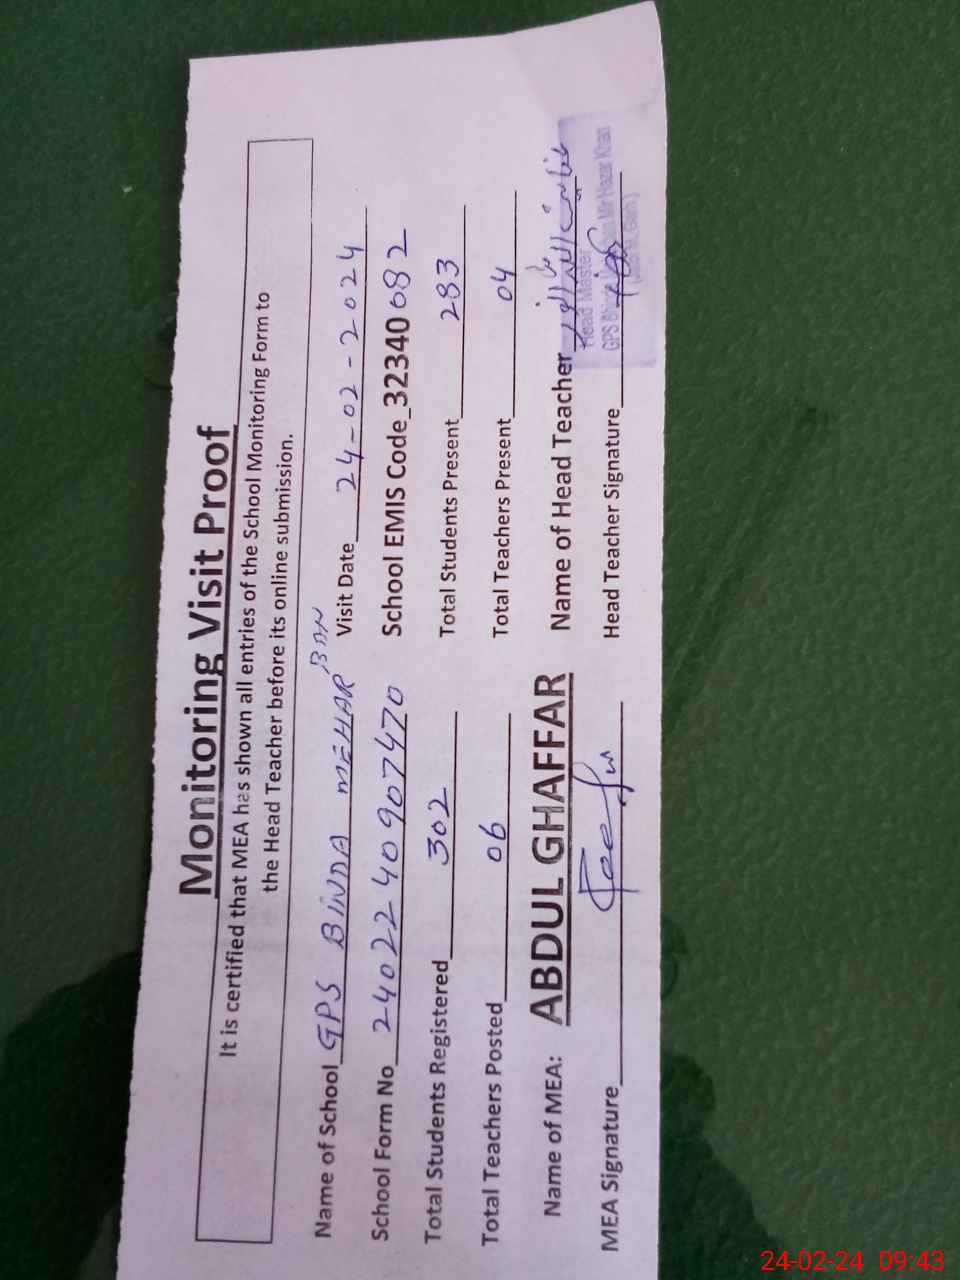 Monitoring Visit Proof
It is certified that MEA has shown all entries of the School Monitoring Form to
the Head Teacher before its online submission.
Name of School GPS BINDA MEHAR BAN Visit Date 24-02-2024
School Form No 2402240907470 School EMIS Code 32340682
Total Students Registered 302 Total Students Present 283
Total Teachers Posted 06 Total Teachers Present 04
Name of MEA: ABDUL GHAFFAR Name of Head Teacher
Head Master
MEA Signature Head Teacher Signature
GPS Mir Hazar Khan
24-02-24 09:43